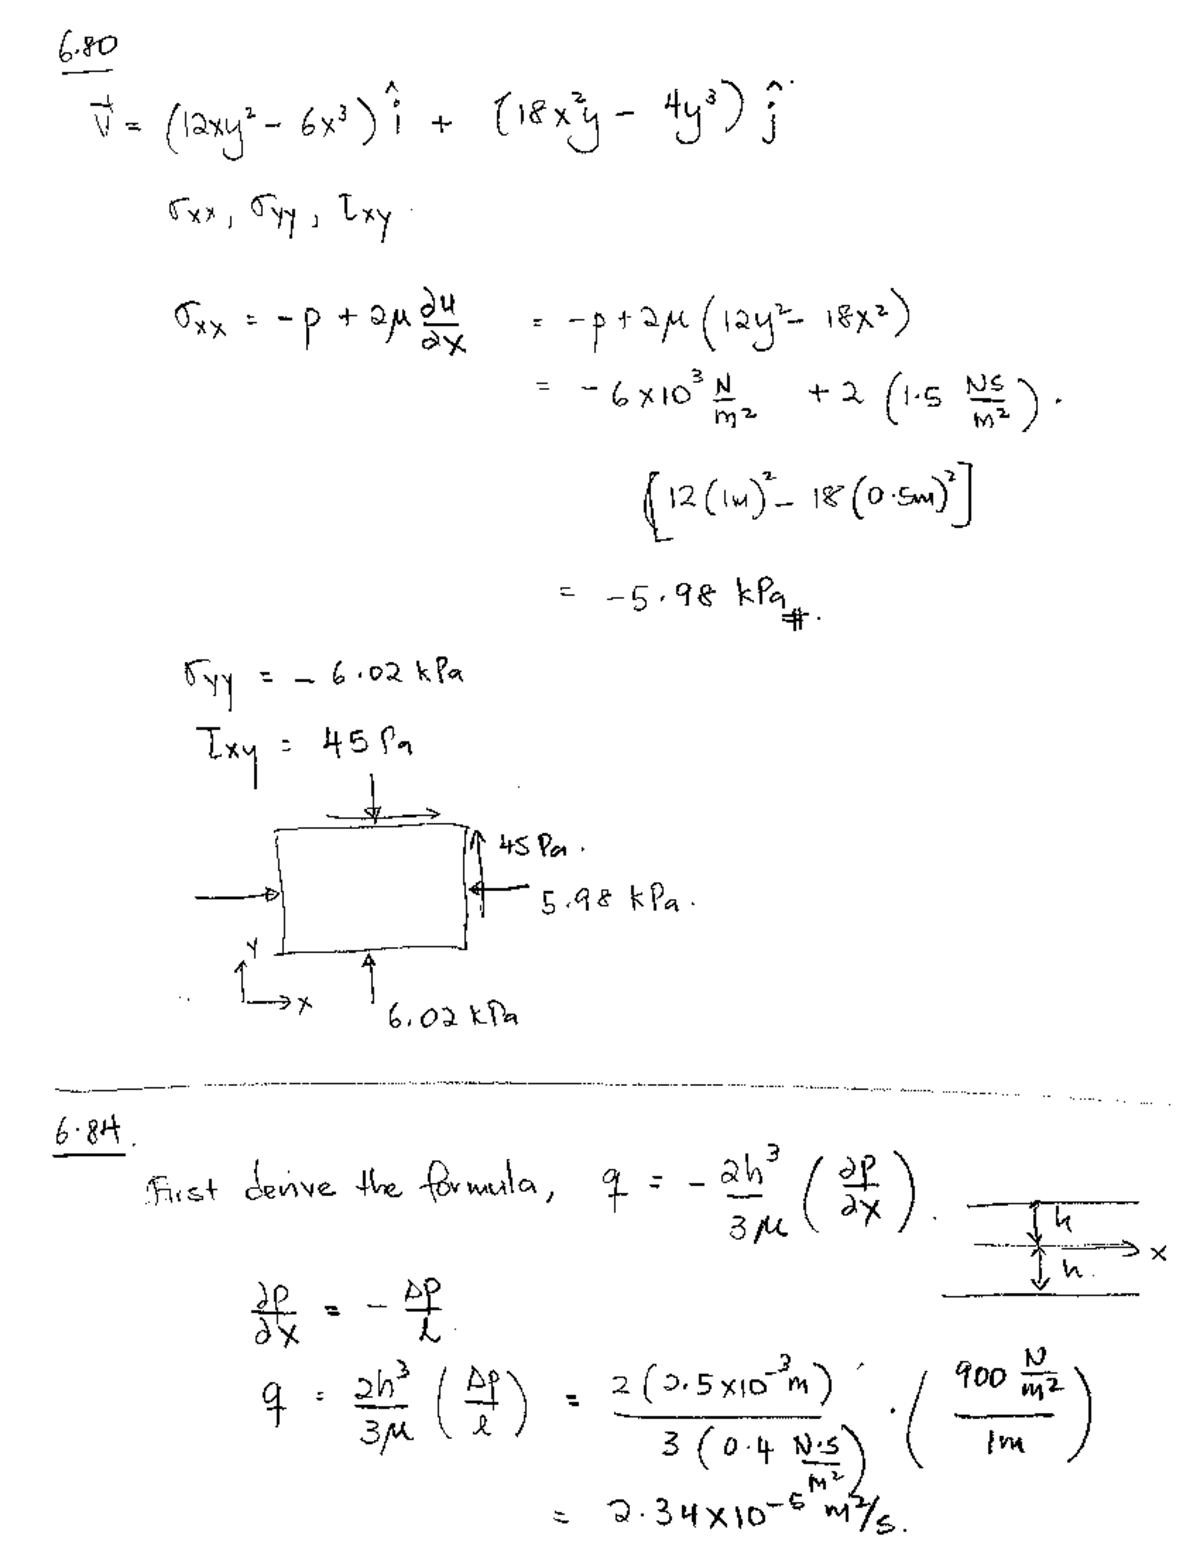 6.80
V⃗ = (12xy² - 6x³) î + (18x²y - 4y³) ĵ
σxx, σyy, τxy.
σxx = -p + 2μ ∂u/∂x = -p + 2μ (12y² - 18x²)
= -6×10³ N/m² + 2 (1.5 NS/m²) ·
[12(1m)² - 18(0.5m)²]
= -5.98 kPa #.
σyy = -6.02 kPa
τxy = 45 Pa
45 Pa.
5.98 kPa.
Y
X
6.02 kPa
6.84.
First derive the formula, q = - 2h³/3μ (∂P/∂x).
h
x
h.
∂P/∂x = - ΔP/l
q = 2h³/3μ (ΔP/l) = 2(2.5×10⁻³m)/3(0.4 N·S/m²) · (900 N/m² / 1m)
= 2.34×10⁻⁵ m²/s.